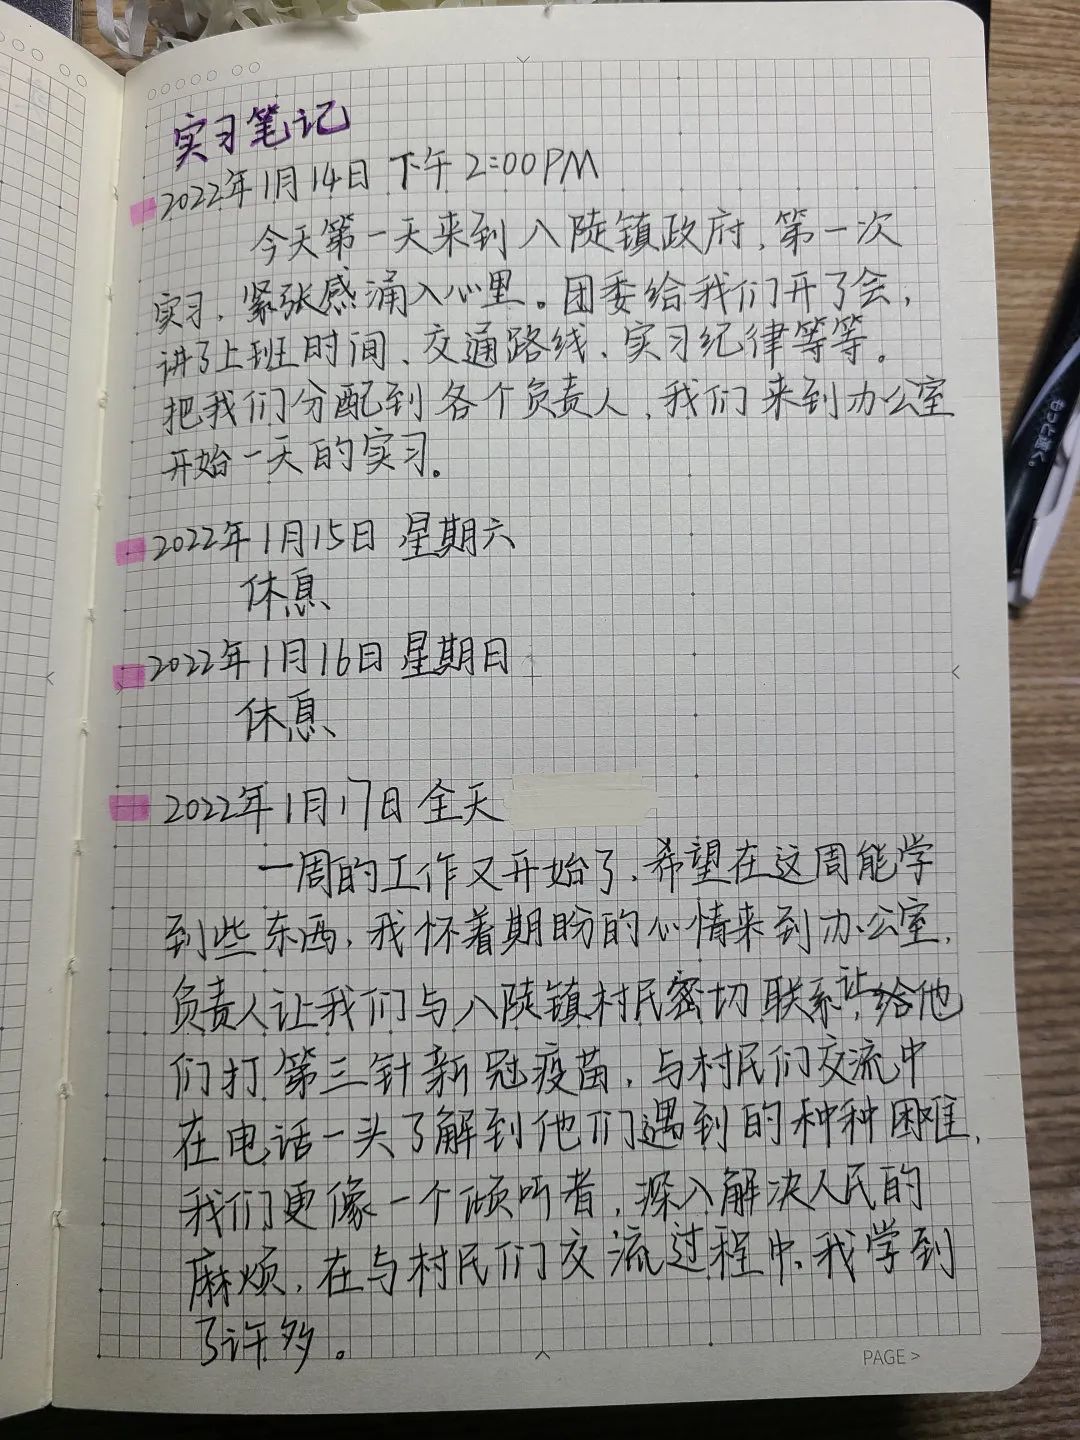 实习笔记
2022年1月14日 下午2:00PM
今天第一天来到八陡镇政府，第一次
实习，紧张感涌入心里。团委给我们开了会，
讲了上班时间、交通路线、实习纪律等等。
把我们分配到各个负责人，我们来到办公室
开始一天的实习。
2022年1月15日 星期六
休息
2022年1月16日 星期日
休息
2022年1月17日 全天
一周的工作又开始了，希望在这周能学
到些东西，我怀着期盼的心情来到办公室，
负责人让我们与八陡镇村民密切联系，让给他
们打第三针新冠疫苗，与村民们交流中
在电话一头了解到他们遇到的种种困难，
我们更像一个倾听者，深入解决人民的
麻烦，在与村民们交流过程中、我学到
了许多。
PAGE >